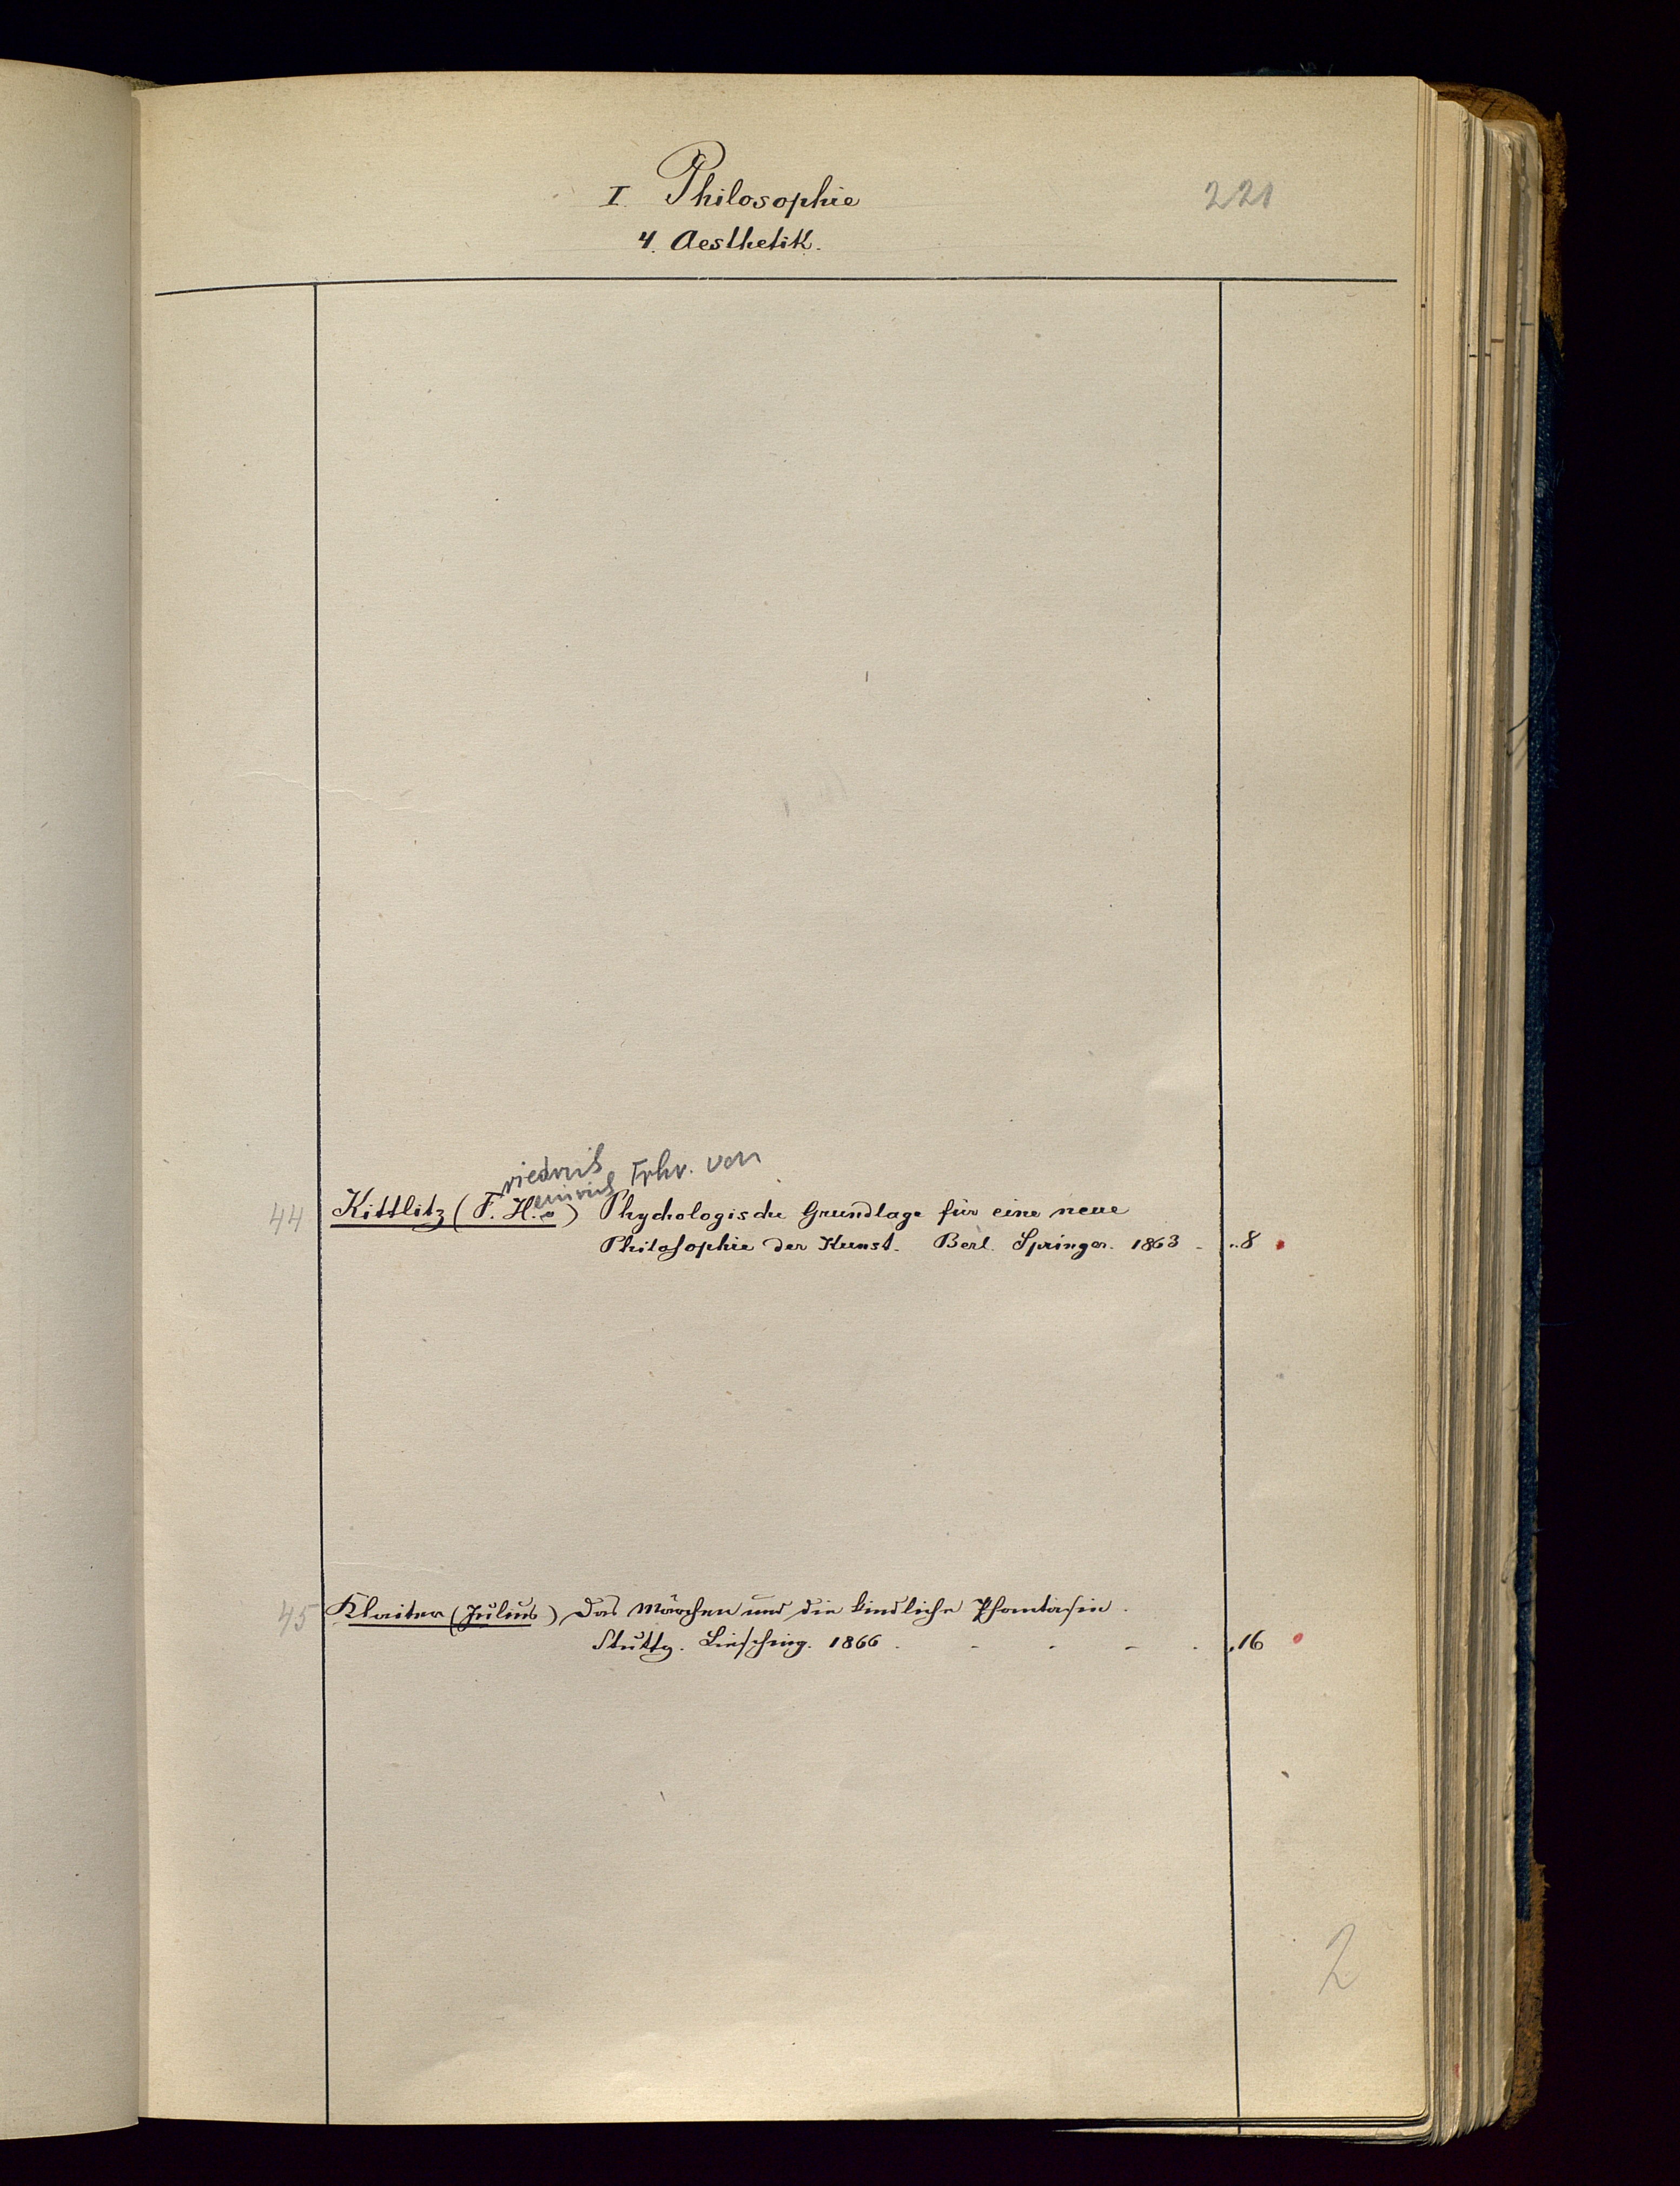 I. Philosophie
221
4. Aesthetik.
riedrich Frhr. von
einrich
44 Kittlitz (F. H. v) Phychologische Grundlage für eine neue
Philosophie der Kunst. Berl. Springer. 1863 - .. 8
45 Klaiber (Julius) Das Märchen und die kindliche Phantasie.
Stuttg. Liesching. 1866 . - - - . . 16
2